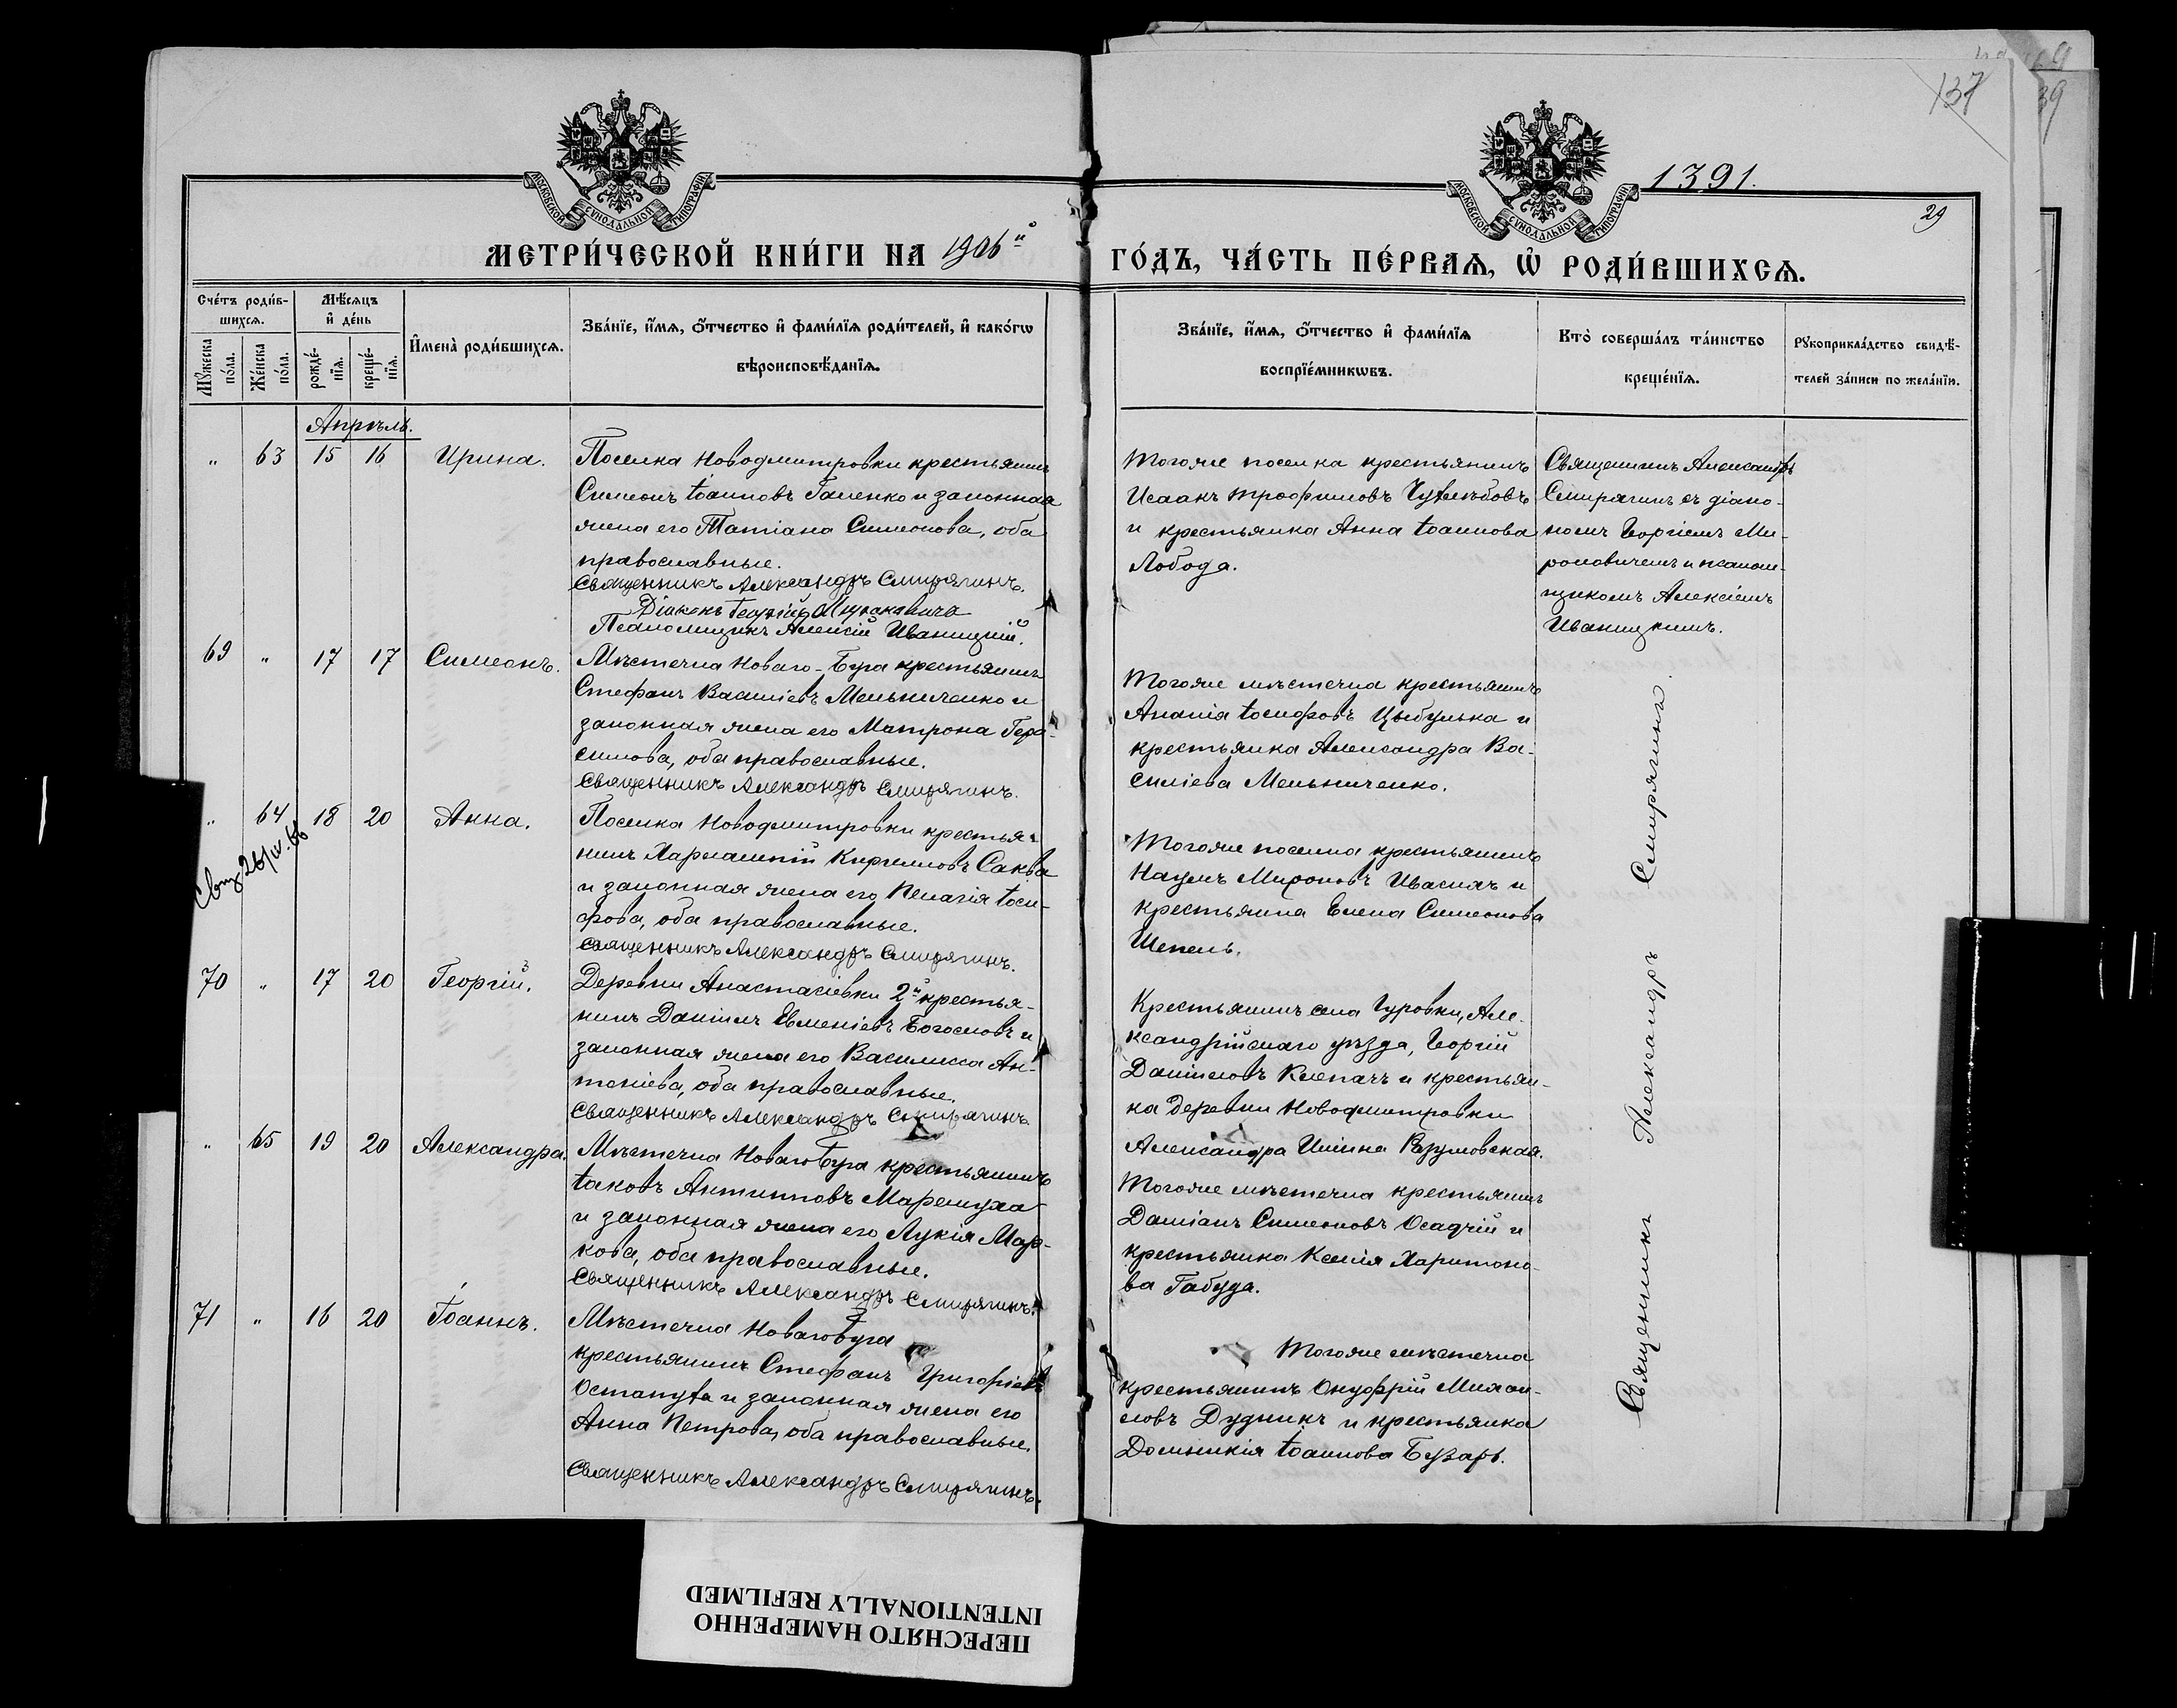 137
39
МОСКОВСКОЙ СУНОДАЛЬНОЙ ТИПОГРАФІИ
МОСКОВСКОЙ СУНОДАЛЬНОЙ ТИПОГРАФІИ
1391.
29
МЕТРИ́ЧЕСКОЙ КНИ́ГИ НА 1906й
ГО́ДЪ, ЧА́СТЬ ПЕ́РВАѦ, Ѡ҆ РОДИ́ВШИХСѦ.
Сче́тъ роди́вшихсѧ.
Мꙋ́жеска по́ла.
Же́нска по́ла.
Мѣ́сѧцъ и҆ де́нь
рожде́нїѧ.
креще́нїѧ.
И҆мена̀ роди́вшихсѧ.
Зва́нїе, и҆́мѧ, ѻ҆́тчество и҆ фами́лїѧ роди́телей, и҆ како́гѡ
вѣроисповѣ́данїѧ.
Зва́нїе, и҆́мѧ, ѻ҆́тчество и҆ фами́лїѧ
воспрїе́мникѡвъ.
Кто̀ соверша́лъ та́инство
креще́нїѧ.
Рꙋкоприкла́дство свидѣ́-
телей за́писи по жела́нїю.
Апрѣль.
" 63 15 16 Ирина.
Поселка Новодмитровки крестьянинъ
Симеонъ Іоанновъ Галенко и законная
жена его Татіана Симеонова, оба
православные.
Священникъ Александръ Смирягинъ.
Діаконъ Георгій Мироновичъ
Псаломщикъ Алексій Иваницкій.
Тогоже поселка крестьянинъ
Исаакъ Трофимовъ
и крестьянка Анна Іоаннова
Лобода.
Священникъ Александръ
Смирягинъ съ діако-
номъ Георгіемъ Ми-
роновичемъ и псалом-
щикомъ Алексіемъ
Иваницкимъ.
69 " 17 17 Симеонъ.
Мѣстечка Новаго-Буга крестьянинъ
Стефанъ Василіевъ Мельниченко и
законная жена его Матрона Гера-
симова, оба православные.
Священникъ Александръ Смирягинъ.
Тогоже мѣстечка крестьянинъ
Ананія Іосифовъ Цыбулька и
крестьянка Александра Ва-
силіева Мельниченко.
" 64 18 20 Анна.
26/IV.66
Поселка Новодмитровки крестья-
нинъ Харлампій Кирилловъ Саква
и законная жена его Пелагія Іоси-
фова, оба православные.
Священникъ Александръ Смирягинъ.
Тогоже поселка крестьянинъ
Наумъ Мироновъ Ивасикъ и
крестьянка Елена Симеонова
Шепель.
70 " 17 20 Георгій.
Деревни Анастасіевки 2й крестья-
нинъ Даніилъ Евменіевъ Богословъ и
законная жена его Василисса Ан-
тоніева, оба православные.
Священникъ Александръ Смирягинъ
Крестьянинъ села Гуровки, Але-
ксандрійскаго уѣзда, Георгій
Даніиловъ Клепачъ и крестьян-
ка деревни Новодмитровки
Александра Иліина Разумовская.
" 65 19 20 Александра.
Мѣстечка Новаго Буга крестьянинъ
Іаковъ Антиповъ Маремуха
и законная жена его Лукія Мар-
кова, оба православные.
Священникъ Александръ Смирягинъ.
Тогоже мѣстечка крестьянинъ
Даміанъ Симеоновъ Осадчій и
крестьянка Ксенія Харитоно-
ва Габуда.
71 " 16 20 Іоаннъ.
Мѣстечка Новаго Буга
крестьянинъ Стефанъ Григоріевъ
Остапу­ѳа и законная жена его
Анна Петрова, оба православные.
Священникъ Александръ Смирягинъ.
Тогоже мѣстечка
крестьянинъ Онуфрій Михаи-
ловъ Дудникъ и крестьянка
Домникія Іоаннова Бузарь.
Священникъ Александръ Смирягинъ.
ПЕРЕСНЯТО НАМЕРЕННО
INTENTIONALLY REFILMED